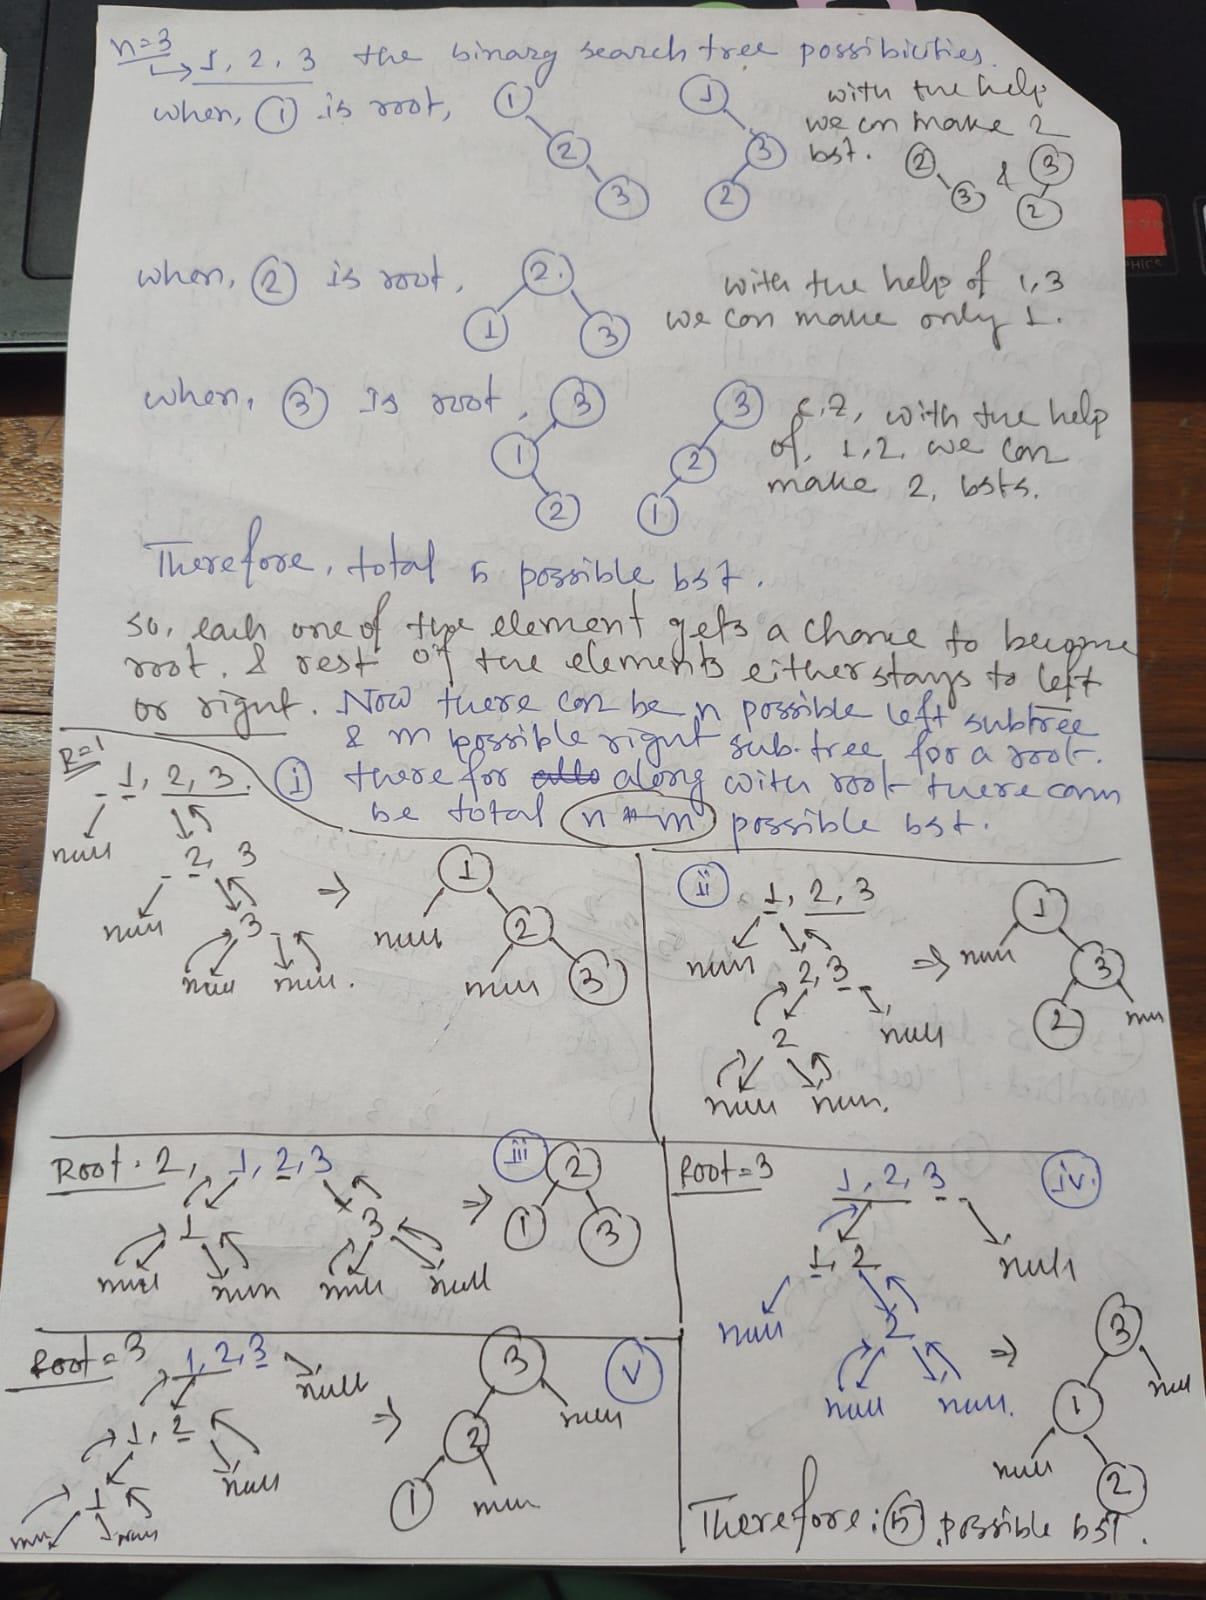 n=3
→ 1, 2, 3 the binary search tree possibilities.
when, ① is root,
1
2
3
1
3
2
with the help
we can make 2
bst.
2
3
&
3
2
when, ② is root,
2.
1
3
with the help of 1,3
we can make only 1.
when, ③ is root,
3
1
2
3
2
1
2, with the help
of, 1,2, we can
make 2, bsts.
Therefore, total 5 possible bst.
so, each one of the element gets a chance to become
root. & rest of the elements either stays to left
or right. Now there can be n possible left subtree
& m possible right sub-tree for a root.
there for along with root there can
be total n * m possible bst.
R=1
1, 2, 3.
null
2, 3
null
3
null null.
⇒
1
null
2
null
3
i
ii
1, 2, 3
null
2, 3
2
null
null null.
⇒
1
null
3
2
null
Root: 2, 1, 2, 3
1
3
null null null null
⇒
iii
2
1
3
Root=3
1, 2, 3
iv.
1, 2
null
null
2
null null.
⇒
3
1
null
null
2
Root=3 1, 2, 3
null
1, 2
null
1
null null
⇒
3
2
null
1
null
v
Therefore: ⑤ possible bst.